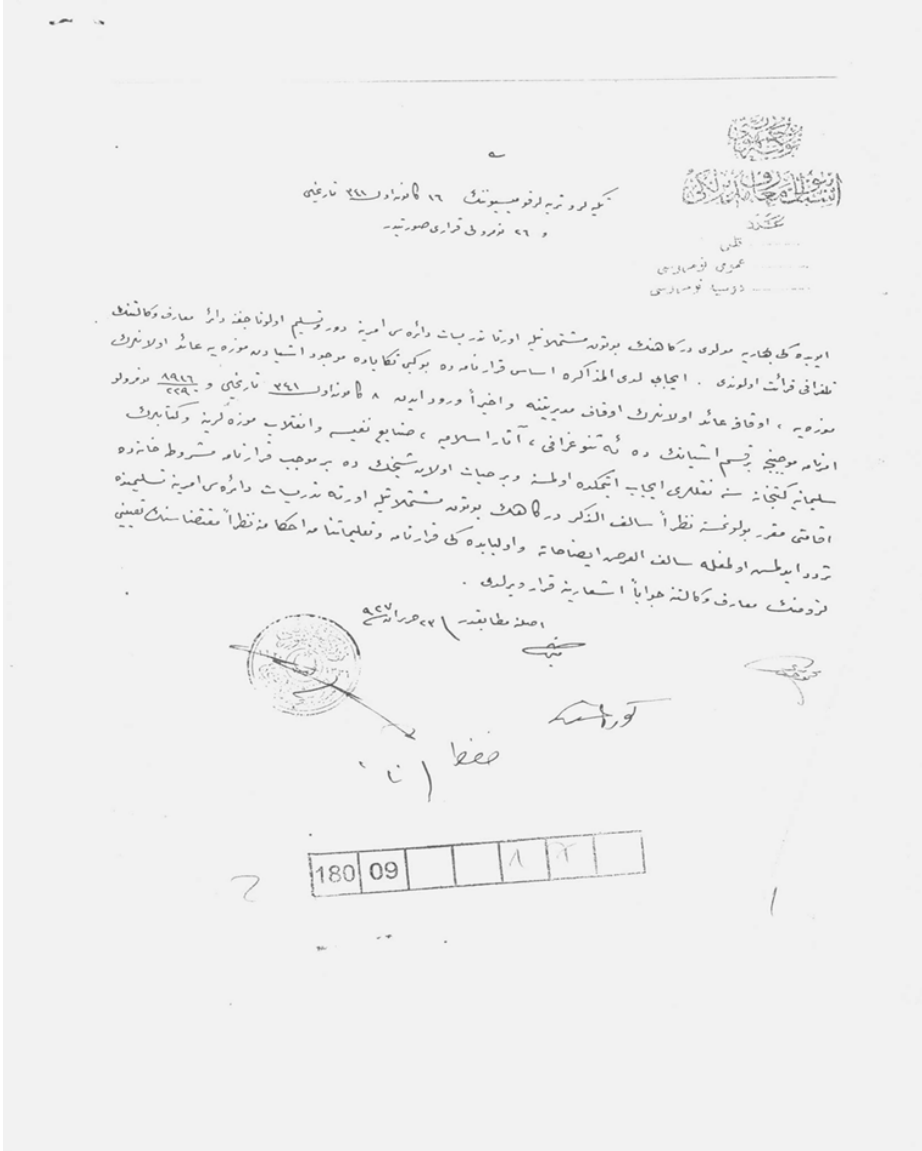 تورکیه جمهوریتی
استانبول معارف امینلکی
عدد
قلمی
عمومی نومروسی
دوسیا نومروسی
تکیه لر و تربه لر قومیسیوننک ١٦ کانون اول ٣٤١ تاریخلی
و ٢٦ نومرولی قراری صورتیدر
ایوبده کی بهاریه مولوی درکاهنک بوتون مشتملاتیله اورتا تدریسات دائره سی امرینه دور و تسلیم اولوناجغنه دائر معارف وکالتنک
تلغرافی قرائت اولوندی . ایجابی لدی المذاکره اساس قرارنامه ده بوکبی تکایاده موجود اشیادن موزه یه عائد اولانلرک
موزه یه ، اوقافه عائد اولانلرک اوقاف مدیریتنه و اخیراً ورود ایدن ٨ کانون اول ٣٤١ تاریخلی و نومرولو
امرنامه موجبنجه بر قسم اشیانک ده ئه تنوغرافی ، آثار اسلامیه ، صنایع نفیسه و انقلاب موزه لرینه و کتابلرک
سلیمانیه کتبخانه سنه نقللری ایجاب ایتمکده اولمسنه و برحیات اولان شیخنک ده بر موجب قرارنامه مشروط خانه ده
اقامتی مقرر بولونمسنه نظراً سالف الذکر درکاهک بوتون مشتملاتیله اورته تدریسات دائره سی امرینه تسلیمنده
تردد ایدلمش اولمغله سالف العرض ایضاحاته و اولبابده کی قرارنامه و تعلیماتنامه احکامنه نظراً مقتضاسنک تعیینی
لزومنک معارف وکالتنه جواباً اشعارینه قرار ویرلدی .
اصلنه مطابقدر ٢٣ حزیران ٩٢٧
حفظ
180 09